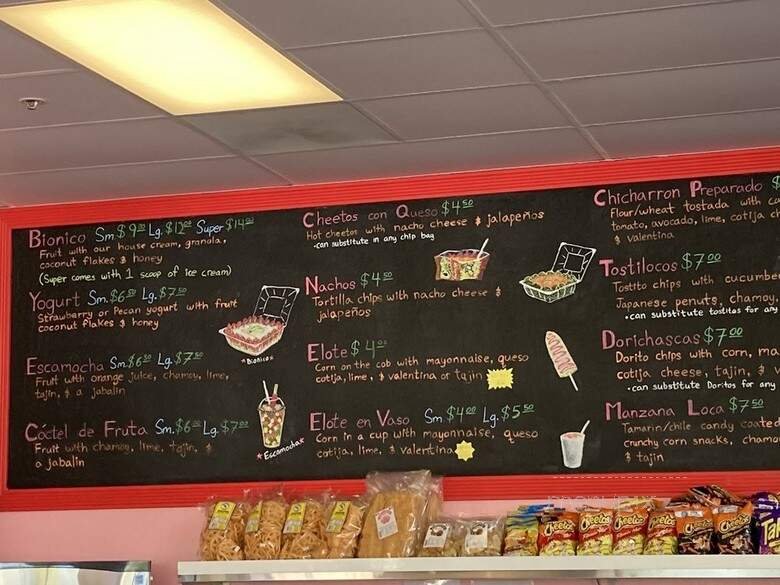 Bionico Sm $9 Lg. $12 Super $14
Fruit with our house cream, granola,
coconut flakes & honey
(Super comes with 1 scoop of ice cream)
Yogurt Sm. $6 50 Lg. $7 50
Strawberry or Pecan yogurt with fruit
coconut flakes & honey
*Bionico*
Escamocha Sm $6 50 Lg. $7 50
Fruit with orange juice, chamoy, lime,
tajin, & a jabalin
*Escamocha*
Cóctel de Fruta Sm. $6 Lg. $7 00
Fruit with chamoy, lime, tajin, &
a jabalin
Cheetos con Queso $4 50
Hot cheetos with nacho cheese & jalapeños
•can substitute in any chip bag
Nachos $4 50
Tortilla chips with nacho cheese &
jalapeños
Elote $4
Corn on the cob with mayonnaise, queso
cotija, lime, & valentina or tajin
Elote en Vaso Sm $4 00 Lg. $5 50
Corn in a cup with mayonnaise, queso
cotija, lime, & valentina
Chicharron Preparado
Flour/wheat tostada with
tomato, avocado, lime, cotija
& valentina
Tostilocos $7 00
Tostito chips with cucumbe
Japanese penuts, chamoy,
•can substitute tostitos for any
Dorichascas $7 00
Dorito chips with corn, ma
cotija cheese, tajin, & v
•can substitute Doritos for any
Manzana Loca $7 50
Tamarin/chile candy coated
crunchy corn snacks, chamo
& tajin
Cheetos
Cheetos
Cheetos
Cheetos
Cheetos
Cheetos
Ta